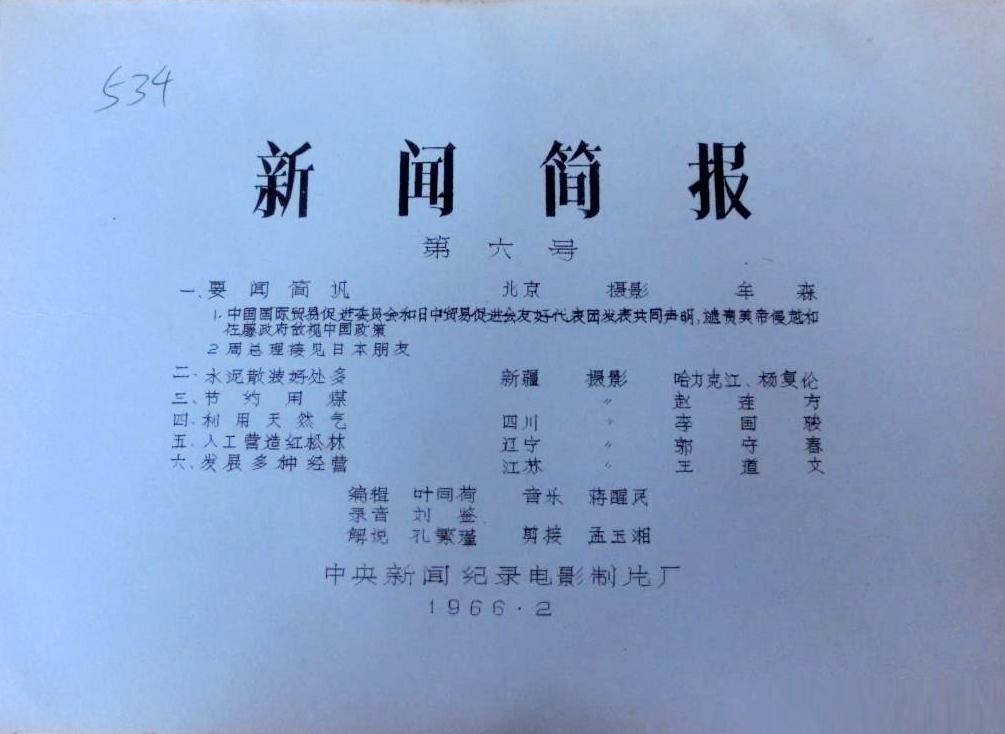 534
新闻简报
第六号
一、要闻简讯 北京 摄影 牟森
1. 中国国际贸易促进委员会和日中贸易促进会友好代表团发表共同声明,谴责美帝侵越和
佐藤政府敌视中国政策
2 周总理接见日本朋友
二、水泥散装好处多 新疆 摄影 哈力克江、杨复伦
三、节约用煤 〃 赵连方
四、利用天然气 四川 〃 李国骏
五、人工营造红松林 辽宁 〃 郭守春
六、发展多种经营 江苏 〃 王道文
编辑 叶同荷 音乐 蒋醒民
录音 刘鉴
解说 孔繁瑾 剪接 孟玉湘
中央新闻纪录电影制片厂
1966·2